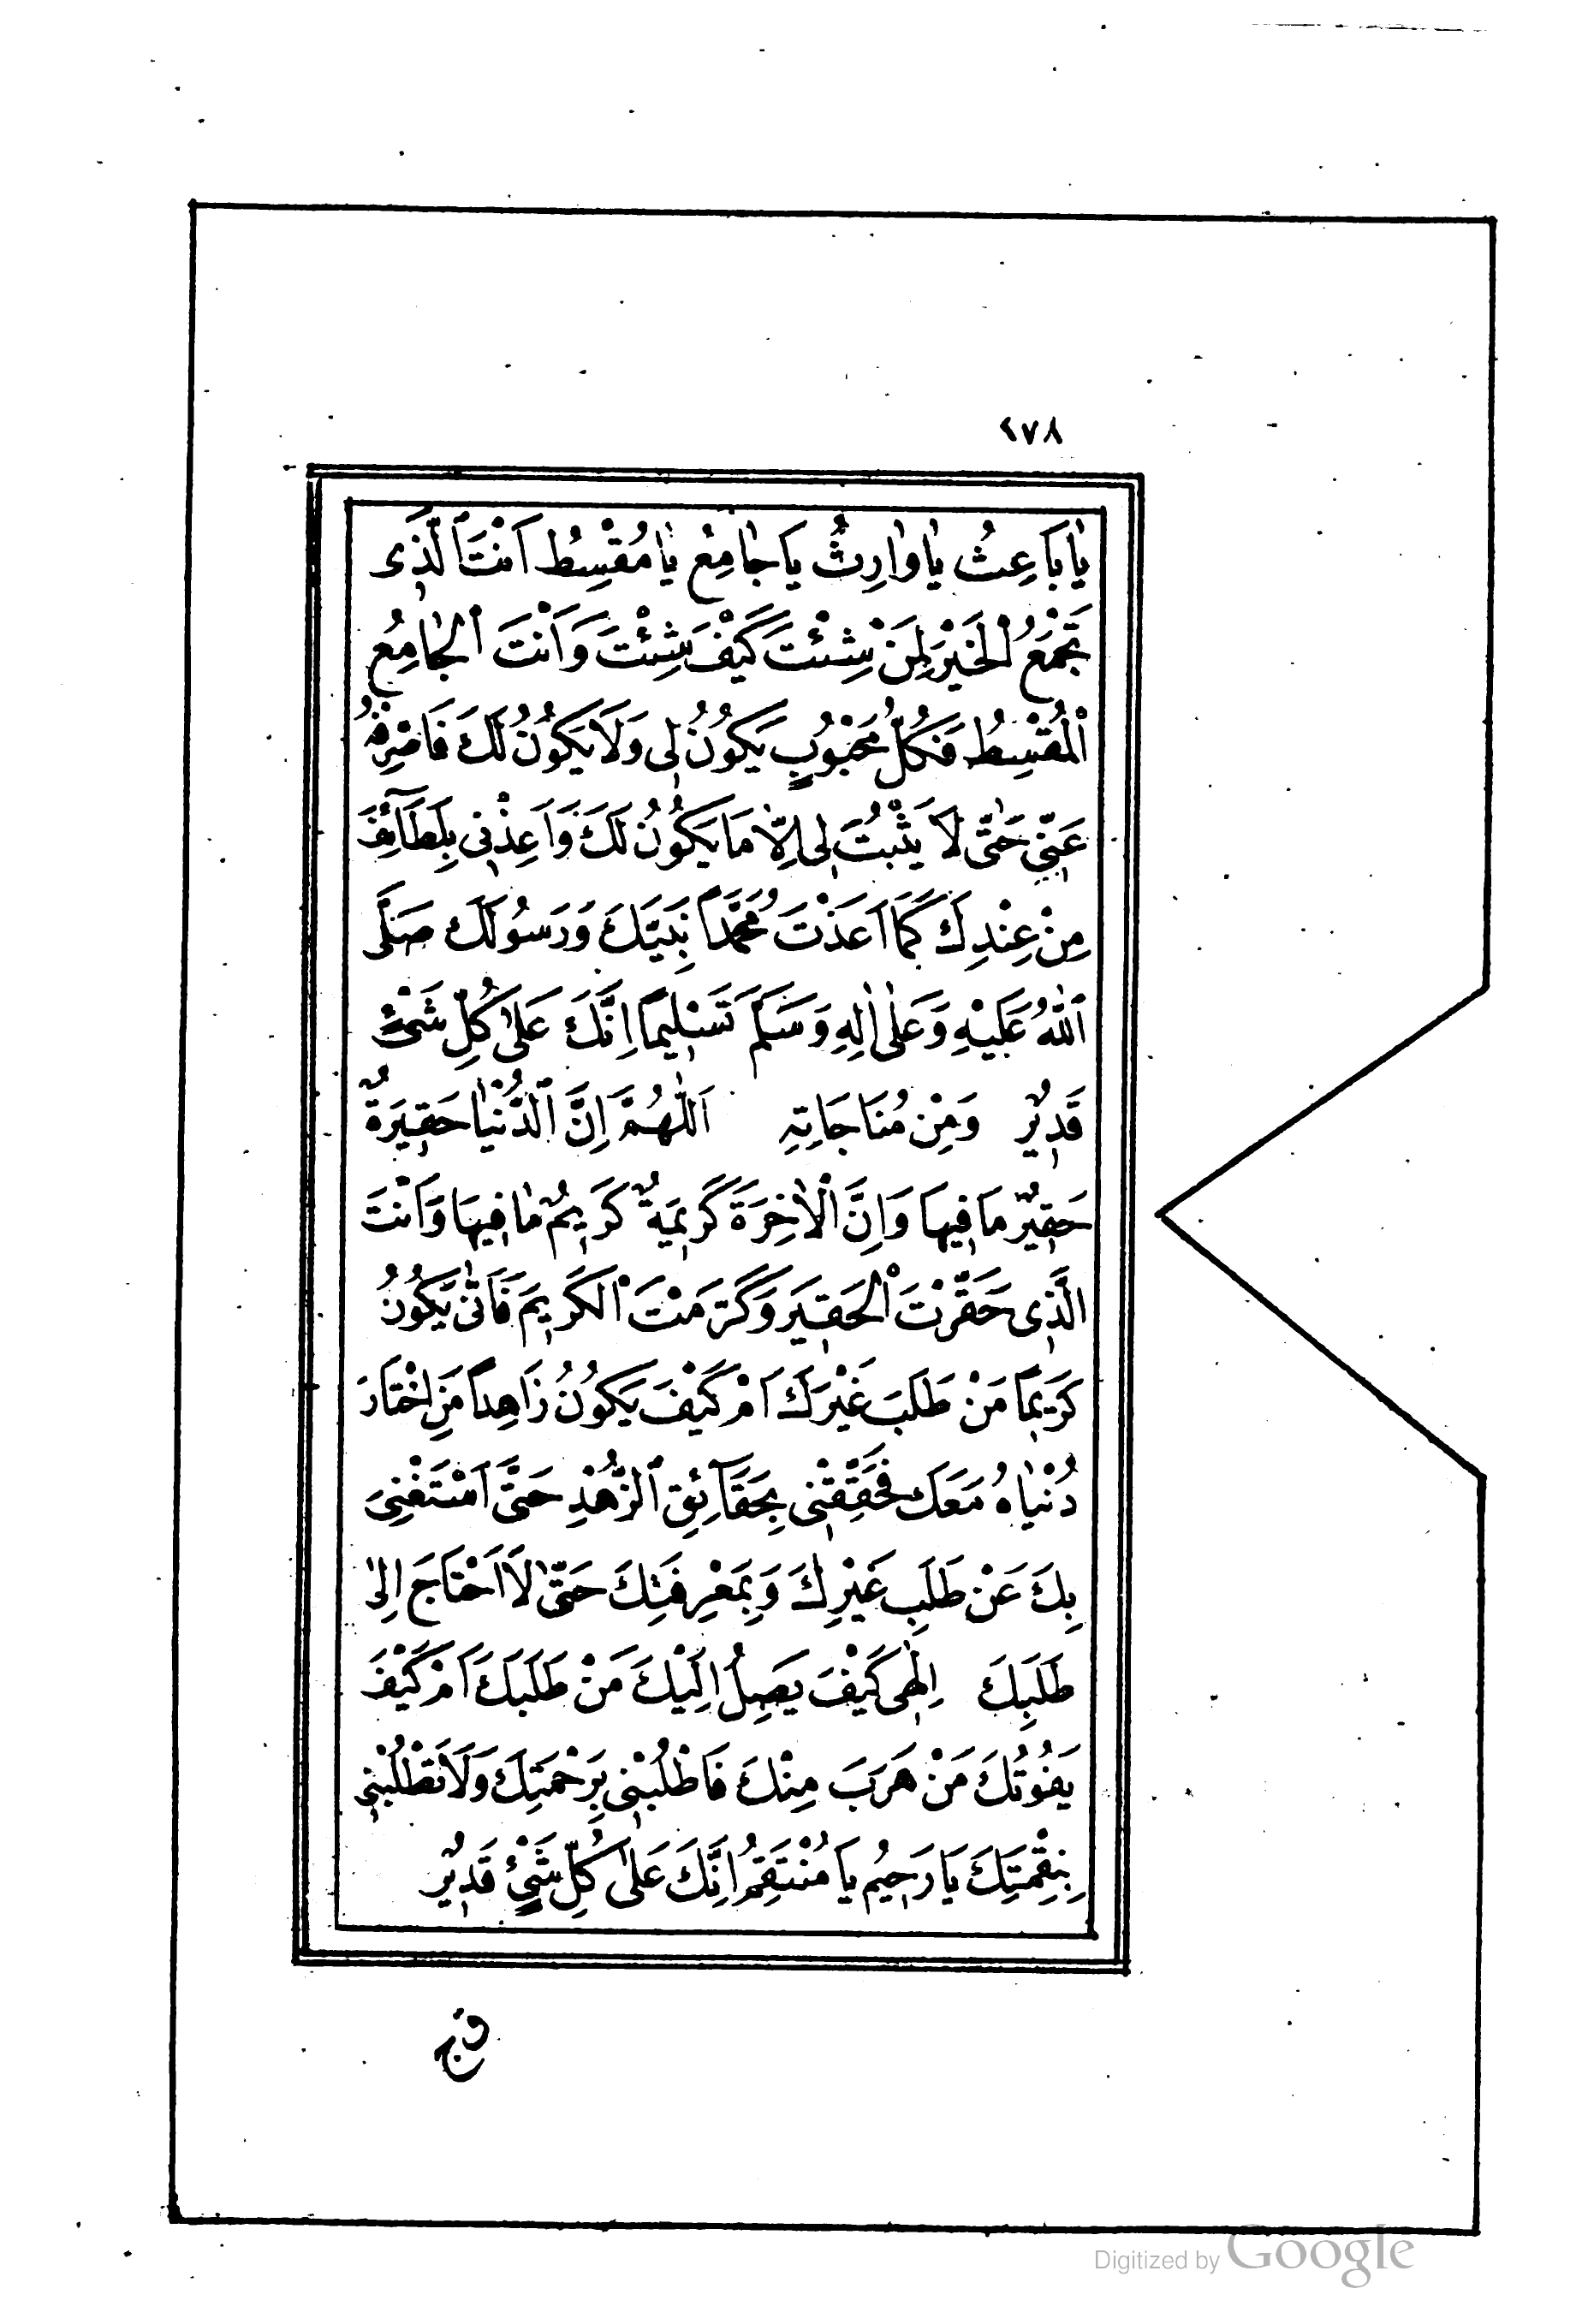 ٤٧٨
يَا بَاعِثُ يَا وَارِثُ يَا جَامِعُ يَا مُقْسِطُ اَنْتَ الَّذِى
تَجْمَعُ الْخَيْرَ لِمَنْ شِئْتَ كَيْفَ شِئْتَ وَاَنْتَ الْجَامِعُ
الْمُقْسِطُ فَكُلُّ مَحْبُوبٍ يَكُونُ لِى وَلَا يَكُونُ لَكَ فَاصْرِفْهُ
عَنِّى حَتّٰى لَا يَثْبُتَ لِى اِلَّا مَا يَكُونُ لَكَ وَاَعِذْنِى بِلَطَآئِفَ
مِنْ عِنْدِكَ كَمَا اَعَذْتَ مُحَمَّدًا نَبِيَّكَ وَرَسُولَكَ صَلَّى
اللّٰهُ عَلَيْهِ وَعَلٰى اٰلِهِ وَسَلَّمَ تَسْلِيمًا اِنَّكَ عَلٰى كُلِّ شَىْءٍ
قَدِيرٌ وَمِنْ مُنَاجَاتِهِ اَللّٰهُمَّ اِنَّ الدُّنْيَا حَقِيرَةٌ
حَقِيرٌ مَا فِيهَا وَاِنَّ الْاٰخِرَةَ كَرِيمَةٌ كَرِيمٌ مَا فِيهَا وَاَنْتَ
الَّذِى حَقَّرْتَ الْحَقِيرَ وَكَرَّمْتَ الْكَرِيمَ فَاَنّٰى يَكُونُ
كَرِيمًا مَنْ طَلَبَ غَيْرَكَ اَمْ كَيْفَ يَكُونُ زَاهِدًا مَنِ اخْتَارَ
دُنْيَاهُ مَعَكَ فَحَقِّقْنِى بِحَقَآئِقِ الزُّهْدِ حَتَّى اَسْتَغْنِىَ
بِكَ عَنْ طَلَبِ غَيْرِكَ وَبِمَعْرِفَتِكَ حَتّٰى لَا اَحْتَاجَ اِلٰى
طَلَبِكَ اِلٰهِى كَيْفَ يَصِلُ اِلَيْكَ مَنْ طَلَبَكَ اَمْ كَيْفَ
يَفُوتُكَ مَنْ هَرَبَ مِنْكَ فَاطْلُبْنِى بِرَحْمَتِكَ وَلَا تَطْلُبْنِى
بِنِقْمَتِكَ يَا رَحِيمُ يَا مُنْتَقِمُ اِنَّكَ عَلٰى كُلِّ شَىْءٍ قَدِيرٌ
Digitized by Google